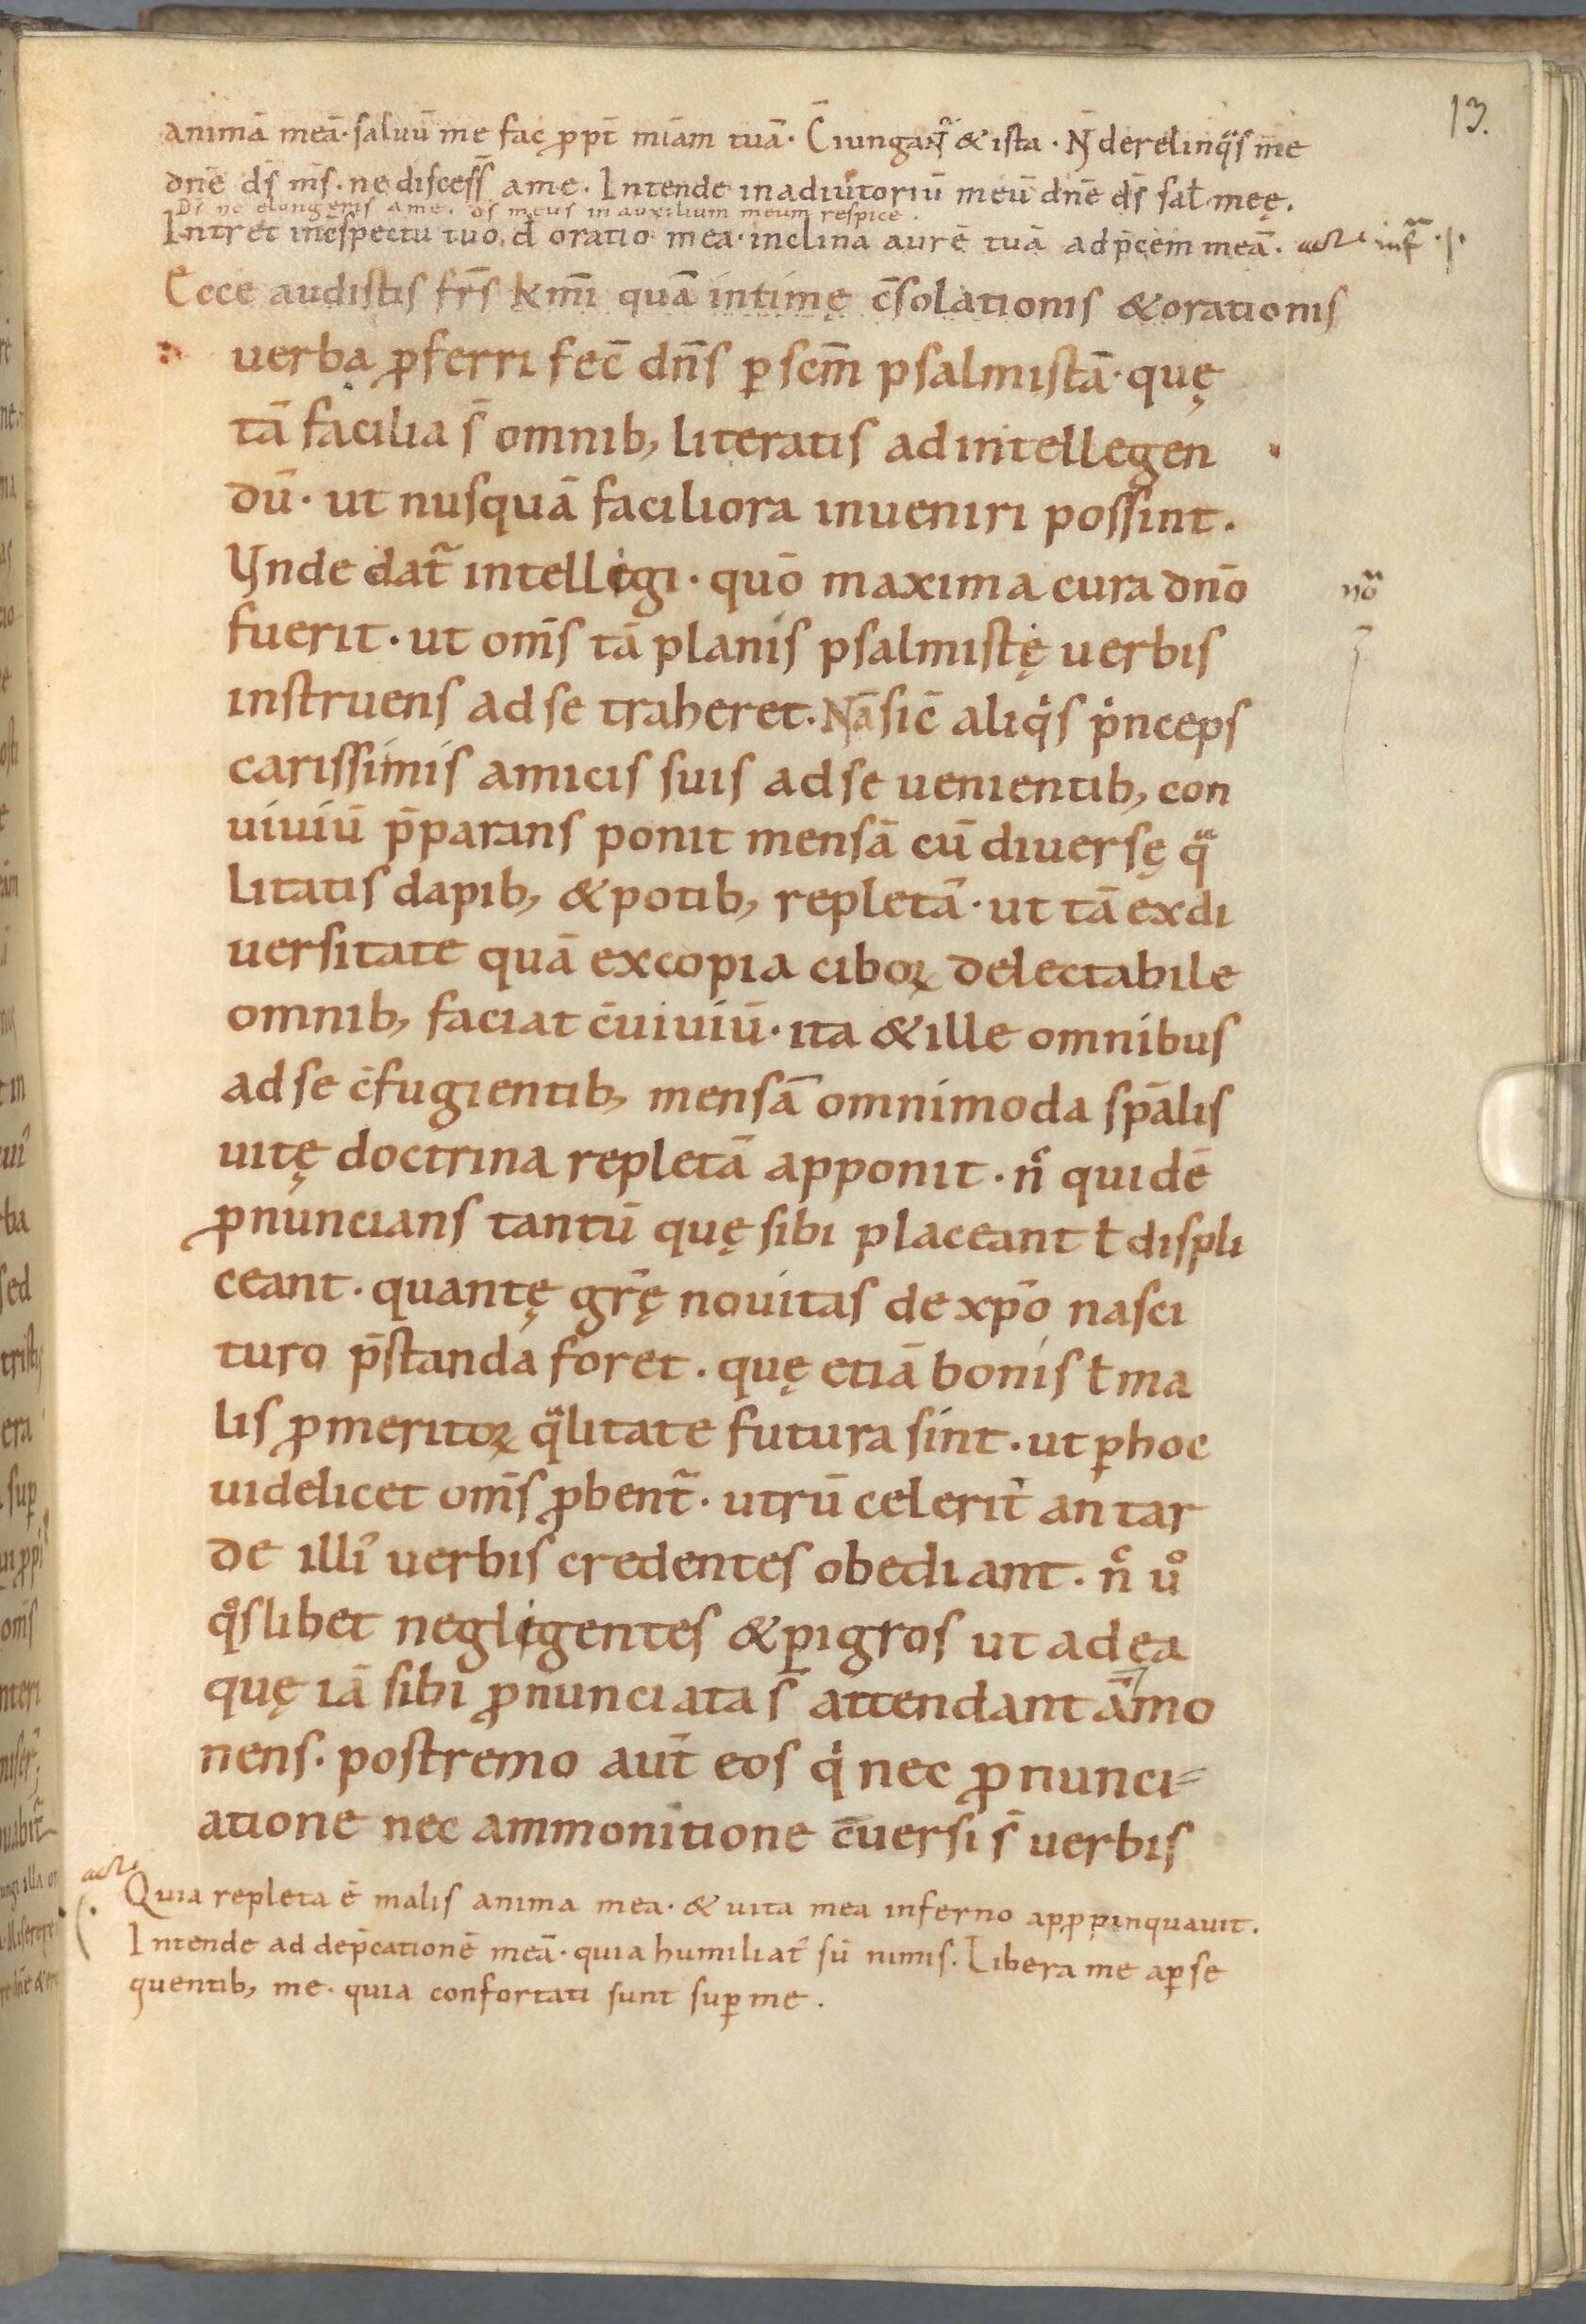 13.
animā meā· saluū me fac ꝓpt̄ miam̄ tuā· C̄iungant᷑ & ista· N̄ derelinqͣs me
dn̄e ds̄ ms̄· ne discess̄ a me· Intende in adiutoriū meū dn̄e ds̄ sal̄ meę.
Ds̄ ne elongeris a me. ds̄ meus in auxilium meum respice.
Intret inc̄spectu tuo dn̄e oratio mea· inclina aurē tuā ad p̄cem meā·
Ecce audistis frs̄ km̄i quā intimę c̄solationis & orationis
uerba ꝓferri fec̄ dn̄s ꝑ scm̄ psalmistā· quę
tā facilia s̄ omnib, literatis ad intellegen
dū· ut nusquā faciliora inueniri possint.
Vnde dat᷑ intelligi· quō maxima cura dn̄o
fuerit· ut oms̄ tā planis psalmistę uerbis
nōͣ
instruens ad se traheret. Nā sic̄ aliqͥs pͥnceps
carissimis amicis suis ad se uenientib, con
uiuiū p̄parans ponit mensā cū diuersę qͣ
litatis dapib, & potib, repletā· ut tā ex di
uersitate quā ex copia ciboꝝ delectabile
omnib, faciat c̄uiuiū· ita & ille omnibus
ad se c̄fugientib, mensā omnimoda sp̄alis
uitę doctrina repletā apponit· n̄ quidē
ꝓnuncians tantū quę sibi placeant ł displi
ceant· quantę gr̄ę nouitas de xp̄o nasci
turo p̄standa foret· quę etiā bonis ł ma
lis ꝓ meritoꝝ qͣlitate futura sint· ut ꝑ hoc
uidelicet oms̄ ꝓbent᷑· utrū celerit̄ an tar
de illiꝰ uerbis credentes obediant· n̄ uͦ
qͦslibet negligentes & pigros ut ad ea
quę iā sibi ꝓnunciata s̄ attendant āmo
nens· postremo aut̄ eos qͥ nec ꝓnunci=
atione nec ammonitione c̄uersi s̄ uerbis
Quia repleta ē malis anima mea· & uita mea inferno appꝓpinquauit.
Intende ad dep̄cationē meā· quia humiliatꝰ sū nimis. Libera me a ꝑse
quentib, me· quia confortati sunt suꝑ me.